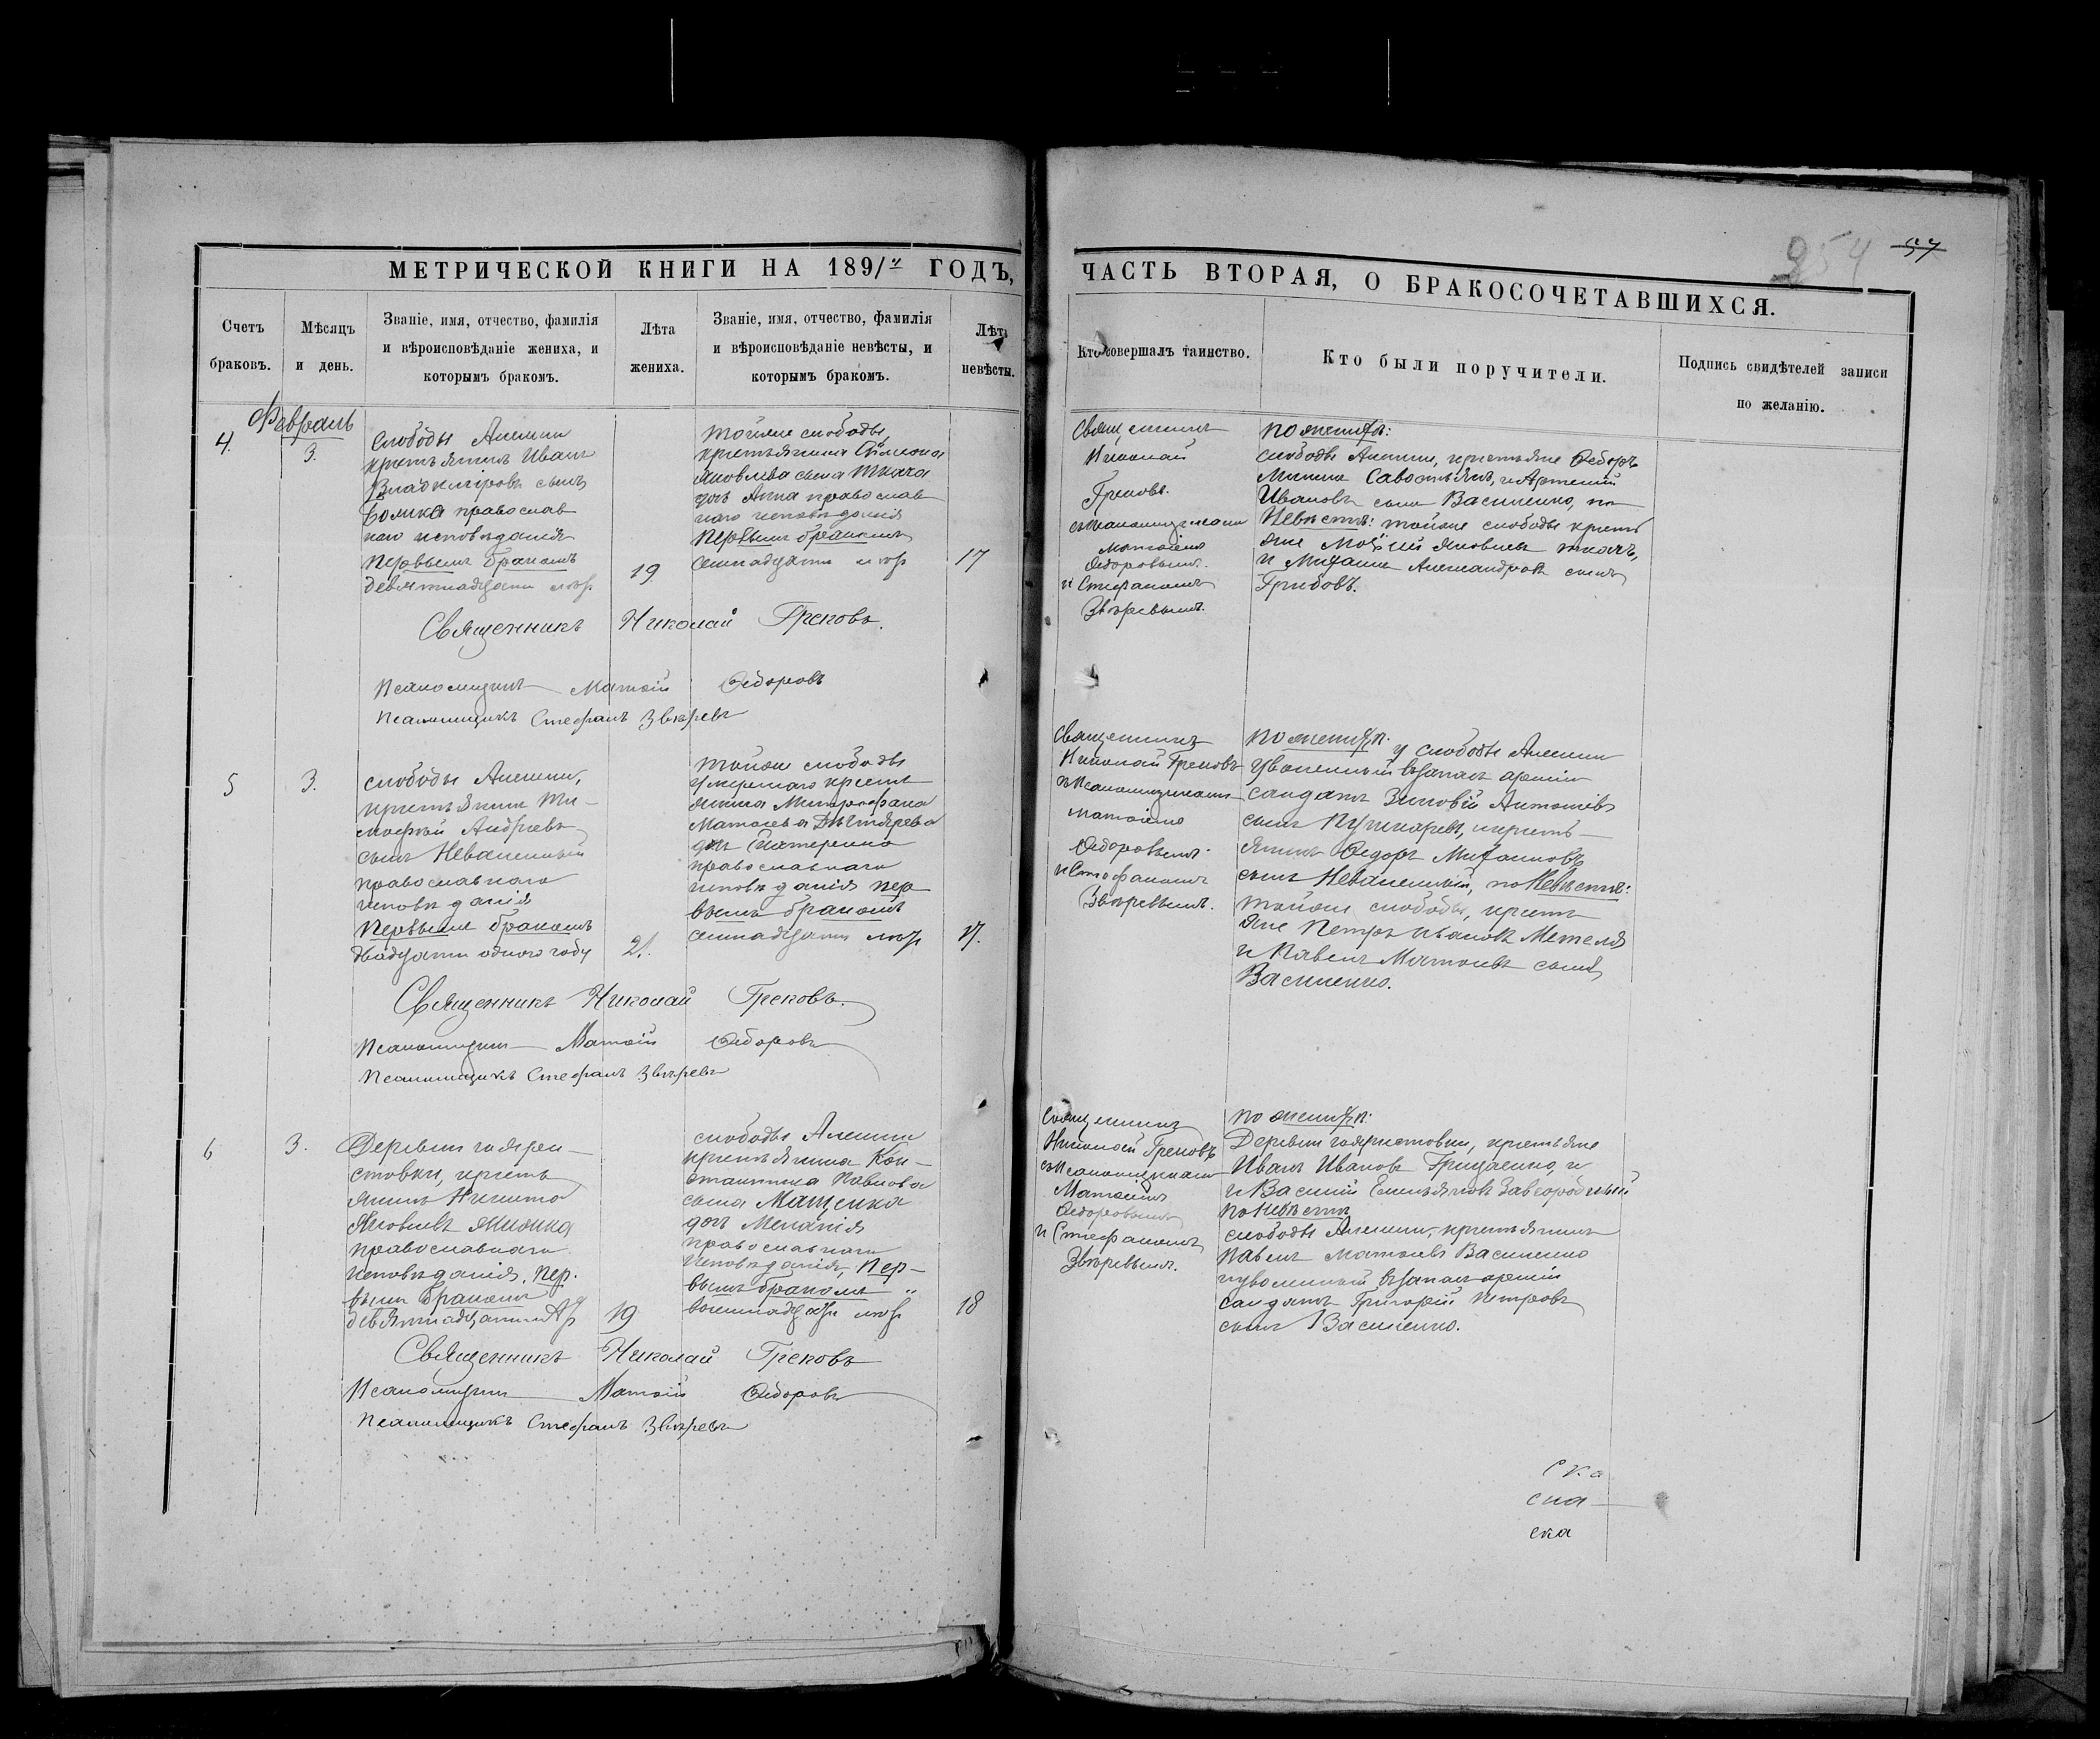 254 57
МЕТРИЧЕСКОЙ КНИГИ НА 1891й ГОДЪ,
Счетъ
браковъ.
Мѣсяцъ
и день.
Званіе, имя, отчество, фамилія
и вѣроисповѣданіе жениха, и
которымъ бракомъ.
Лѣта
жениха.
Званіе, имя, отчество, фамилія
и вѣроисповѣданіе невѣсты, и
которымъ бракомъ.
Лѣта
невѣсты.
ЧАСТЬ ВТОРАЯ, О БРАКОСОЧЕТАВШИХСЯ.
Кто совершалъ таинство.
Кто были поручители.
Подпись свидѣтелей записи
по желанію.
Февраль
4.
3.
слободы
крестьянинъ Иванъ
Владиміровъ сынъ
православ
наго исповѣданія
первымъ бракомъ
девятнадцати лѣтъ
19
тойже слободы
крестьянина Симеона
Яковлева сына Ткача
дочь Анна православ
наго исповѣданія
первымъ бракомъ
семнадцати лѣтъ
17
Священникъ
Николай
Грековъ.
съ псаломщиками
Матѳіемъ
Ѳедоровымъ
и Стефаномъ
Звѣревымъ.
по женихѣ:
слободы крестьяне Ѳедоръ
и Артемій
Ивановъ сынъ Василенко, по
невѣстѣ: тойже слободы кресть
яне Яковлевъ Ткачъ,
и Михаилъ Александровъ сынъ
Грибовъ.
Священникъ Николай Грековъ.
Псаломщикъ Матѳій Ѳедоровъ
Псаломщикъ Стефанъ Звѣревъ
5
3.
слободы
крестьянинъ Ти-
моѳей Андреевъ
сынъ
православнаго
исповѣданія
первымъ бракомъ
двадцати одного году
21.
тойже слободы
умершаго кресть
янина Митрофана
Матѳеева Дѣгтярева
дочь Екатерина
православнаго
исповѣданія пер
вымъ бракомъ
семнадцати лѣтъ
17.
Священникъ
Николай Грековъ
съ псаломщиками
Матѳіемъ
Ѳедоровымъ
и Стефаномъ
Звѣревымъ.
по женихѣ:
слободы
уволенный въ запасъ арміи
солдатъ Зиновій
сынъ Пушкаревъ, и кресть-
янинъ Ѳедоръ Михаиловъ
сынъ по невѣстѣ:
тойже слободы, кресть
яне Петръ Ивановъ Метеля
и Павелъ Матѳеевъ сынъ
Василенко.
Священникъ Николай Грековъ.
Псаломщикъ Матѳій Ѳедоровъ
Псаломщикъ Стефанъ Звѣревъ
6
3.
Деревни
кресть
янинъ Никита
Яковлевъ
православнаго
исповѣданія, пер.
вымъ бракомъ
девятнадцати лѣтъ
19
слободы
крестьянина Кон-
стантина Павлова
сына Мащенка
дочь Меланія
православнаго
исповѣданія, пер-
вымъ бракомъ
восемнадцати лѣтъ
18
Священникъ
Николай Грековъ
съ псаломщиками
Матѳіемъ
Ѳедоровымъ
и Стефаномъ
Звѣревымъ.
по женихѣ:
Деревни крестьяне
Иванъ Ивановъ Грицаенко, и
и Василій Емельяновъ Завгородный
по невѣстѣ
слободы крестьянинъ
Павелъ Матѳеевъ Василенко
и уволенный въ запасъ арміи
солдатъ Григорій Петровъ
сынъ Василенко.
Священникъ Николай Грековъ
Псаломщикъ Матѳій Ѳедоровъ
Псаломщикъ Стефанъ Звѣревъ
ска
ска
ска